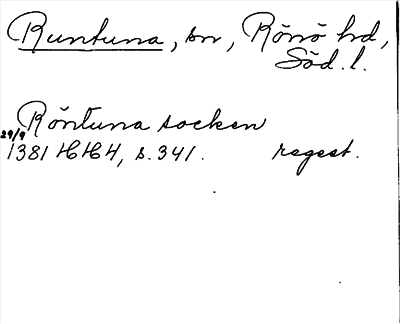 Runtuna, sn, Rönö hd,
Söd. l.
Röntuna socken
29/9
1381 HH4, s. 341. regest.